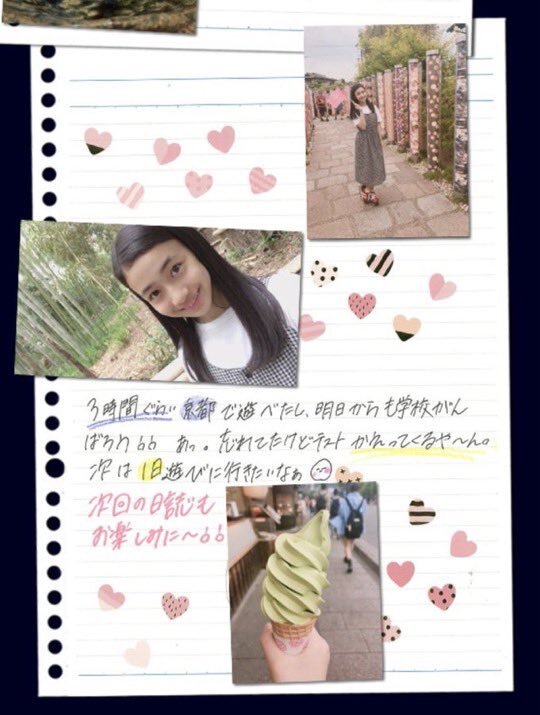 3時間ぐらい京都で遊べたし、明日からも学校がん
ばろう６６ あっ。忘れてたけどテストかえってくるや〜ん。
次は1日遊びに行きたいなぁ
次回の日記も
お楽しみに〜６６